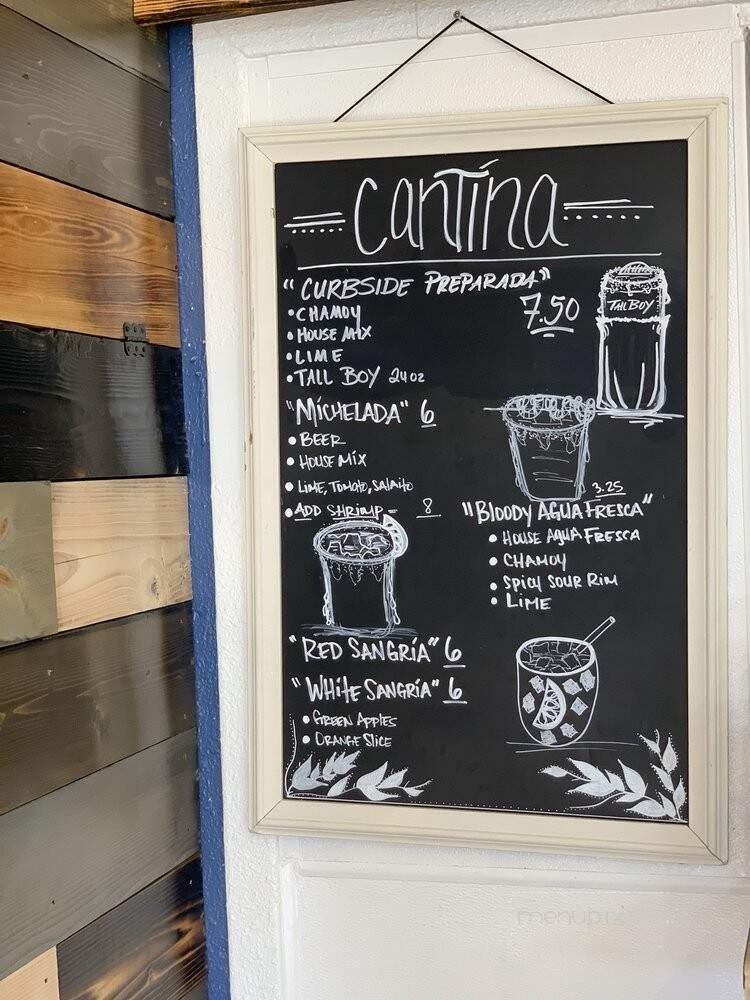 CANTÍNA
"CURBSIDE PREPARADA"
7.50
• CHAMOY
• HOUSE MIX
• LIME
• TALL BOY 24oz
TALL BOY
"MÍCHELADA" 6
• BEER
• HOUSE MIX
• LIME, TOMATO, SALAITO
• ADD SHRIMP - 8
3.25
"BLOODY AGUA FRESCA"
• HOUSE AQUA FRESCA
• CHAMOY
• SPICY SOUR RIM
• LIME
"RED SANGRÍA" 6
"WHITE SANGRÍA" 6
• GREEN APPLES
• ORANGE SLICE
menupix